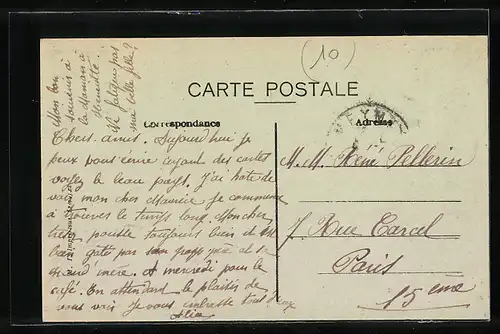 (10)
CARTE POSTALE
Correspondance
Adresse
Mon bon
souvenir à
la maman à
Ne fatigue pas
ma belle fille ?
Chers amis. Aujourd'hui je
peux vous écrire ayant des cartes
voyez le beau pays. J'ai hâte de
voir mon cher Maurice je commence
à trouver le temps long. Mon cher
pousse toujours bien
gâté par son
grand'mère. à mercredi pour le
café. En attendant le plaisir de
vous voir je vous embrasse tous
M. M. René Pellerin
7 Rue Carcel
Paris
15eme